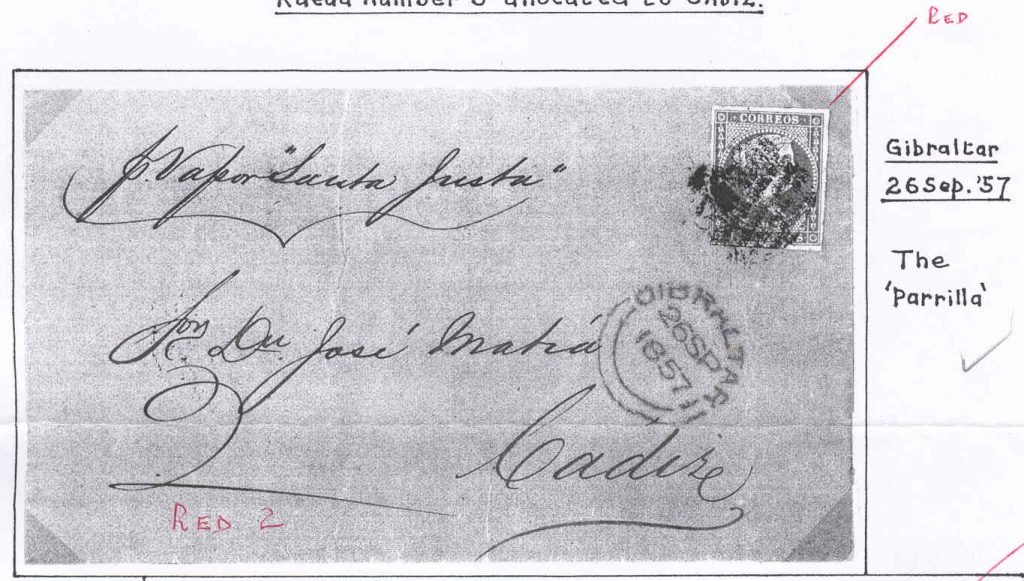 Rueda Number 3 allocated to CADIZ.
RED
CORREOS
Gibraltar
26 Sep. '57
The
'Parrilla'
p. Vapor "Santa Justa"
GIBRALTAR
26SP
1857
Sor. Dn José Matiá
2
Cadiz
RED 2